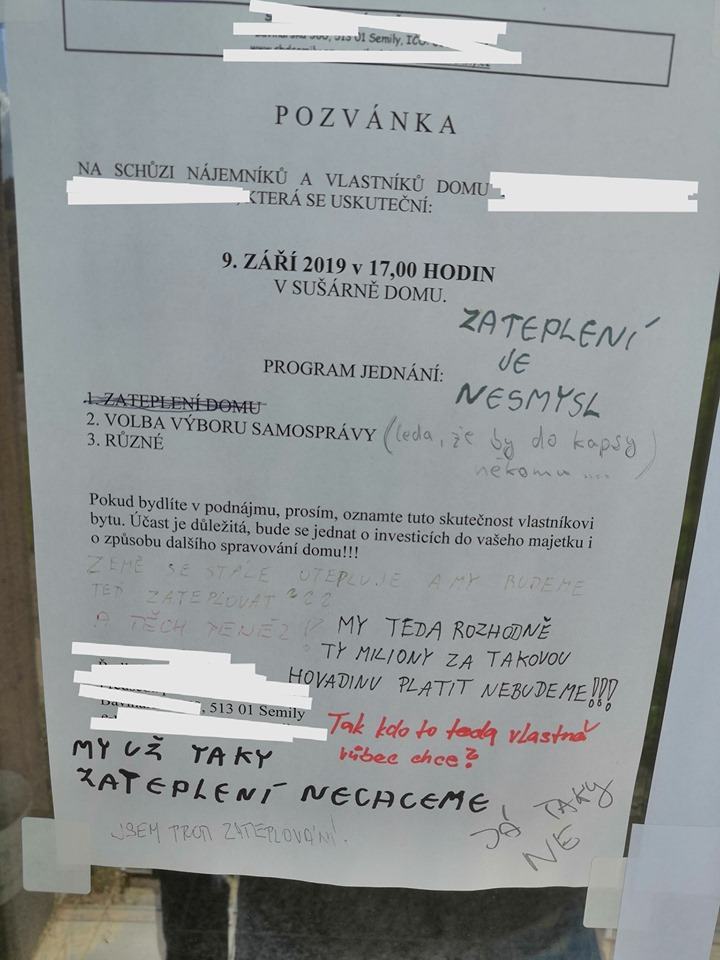 513 01 Semily, IČO:
POZVÁNKA
NA SCHŮZI NÁJEMNÍKŮ A VLASTNÍKŮ DOMU
, KTERÁ SE USKUTEČNÍ:
9. ZÁŘÍ 2019 v 17,00 HODIN
V SUŠÁRNĚ DOMU.
ZATEPLENÍ
JE
NESMYSL
PROGRAM JEDNÁNÍ:
1. ZATEPLENÍ DOMU
2. VOLBA VÝBORU SAMOSPRÁVY
3. RŮZNÉ
(leda, že by do kapsy
někomu ....)
Pokud bydlíte v podnájmu, prosím, oznamte tuto skutečnost vlastníkovi
bytu. Účast je důležitá, bude se jednat o investicích do vašeho majetku i
o způsobu dalšího spravování domu!!!
ZEMĚ SE STÁLE UTEPLUJE A MY BUDEME
TEĎ ZATEPLOVAT ???
A TĚCH PENĚZ !?
MY TEDA ROZHODNĚ
TY MILIONY ZA TAKOVOU
HOVADINU PLATIT NEBUDEME!!!
, 513 01 Semily
Tak kdo to teda vlastně
vůbec chce?
MY UŽ TAKY
ZATEPLENÍ NECHCEME
JÁ TAKY
NE
JSEM PROTI ZATEPLOVÁNÍ.